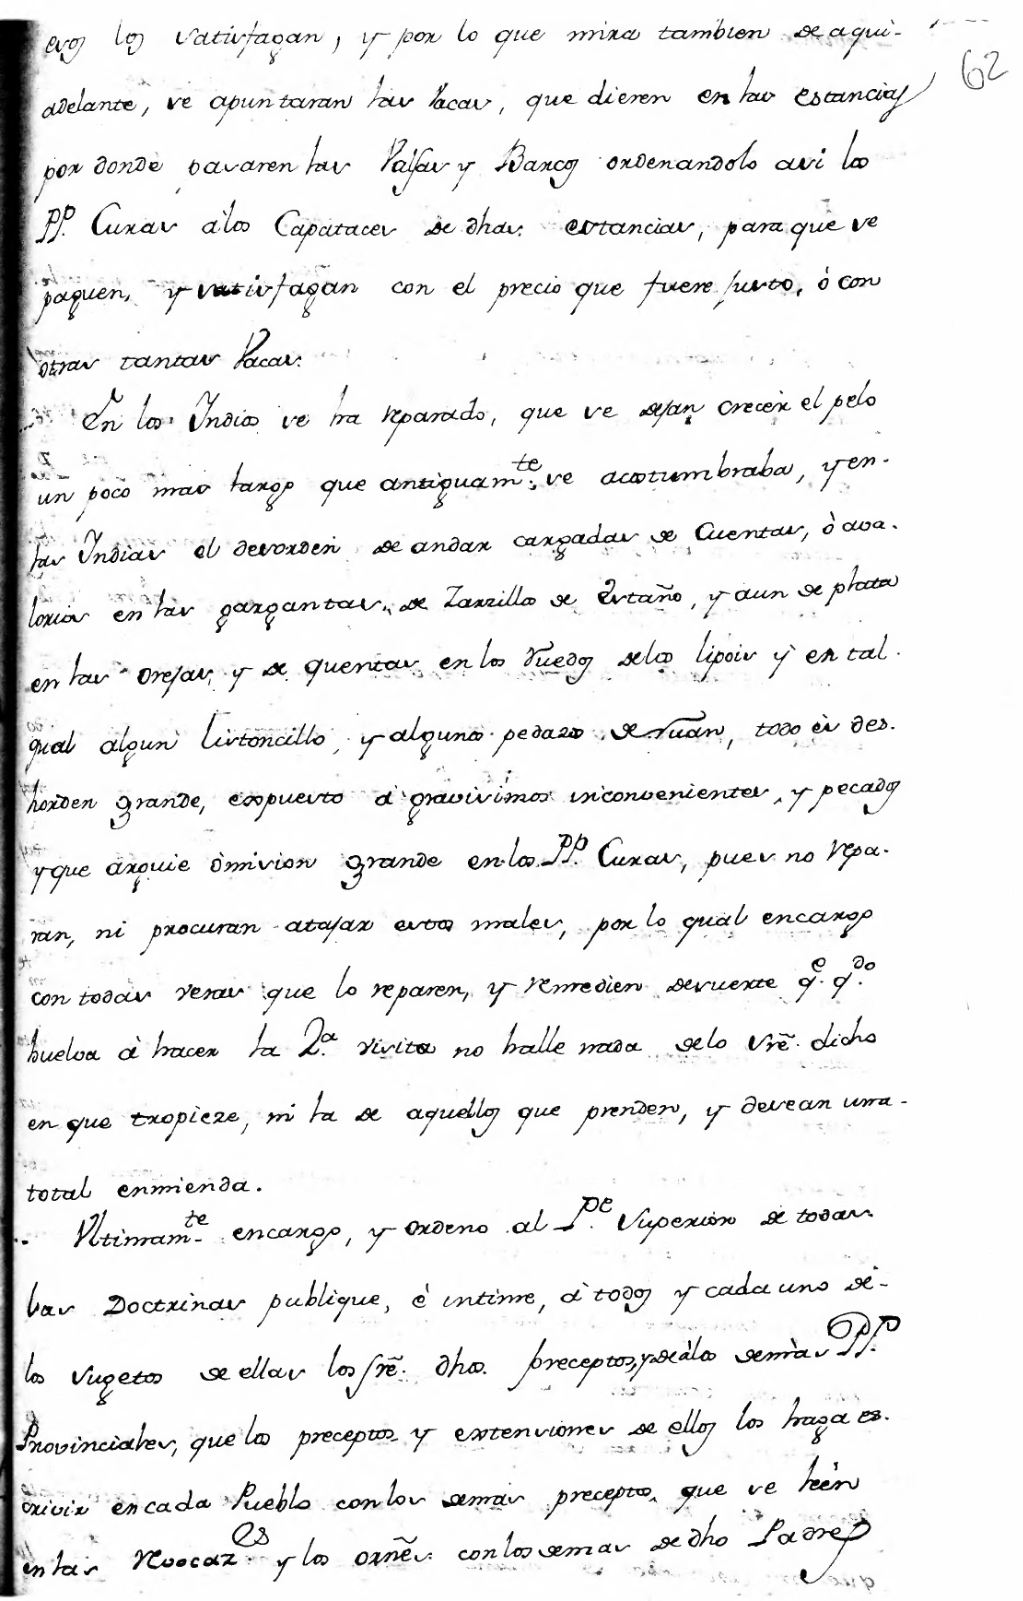 62
evos los satisfagan, y por lo que mira tambien de aqui-
adelante, se apuntaran las Vacas, que dieren en las estancias
por donde pasaren las Valsas y Barcos ordenandolo asi los
PP. Curas a los Capataces de dhas. estancias, para que se
paguen, y satisfagan con el precio que fuere justo, ó con
otras tantas Vacas.
En los Indios se ha reparado, que se dejan crecer el pelo
un poco mas largo que antiguam.te se acostumbraba, y en-
las Indias el desorden de andar cargadas de Cuentas, ò ava-
lorios en las gargantas, de Zarzillos de Estaño, y aun de plata
en las orejas, y de quentas en los ruedos de los lipois y en tal
qual algun listoncillo, y algunos pedazos de ruan, todo es des-
horden grande, expuesto à gravisimos inconvenientes, y pecados
y que arguie omision grande en los PP. Curas, pues no repa-
ran, ni procuran atajar estos males, por lo qual encargo
con todas veras que lo reparen, y remedien de suerte q.e q.do
buelva à hacer la 2.a visita no halle nada de lo sre. dicho
en que tropieze, ni la de aquellos que prenden, y desean una-
total enmienda.
Ultimam.te encargo, y ordeno al P.e Superior de todas
las Doctrinas publique, è intime, à todos y cada uno de-
los sugetos de ellas los sre. dhos. preceptos, y de à los demàs PP.
Provinciales, que los preceptos y extensiones de ellos los haga es-
crivir en cada Pueblo con los demas preceptos, que se leèn
en las Renovaz.es y los ordñes. con los demas de dho Padre